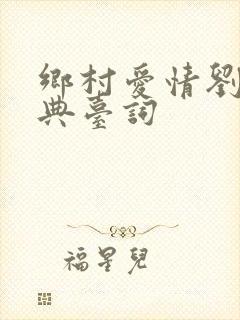 鄉村愛情劉
典臺詞
福星兒